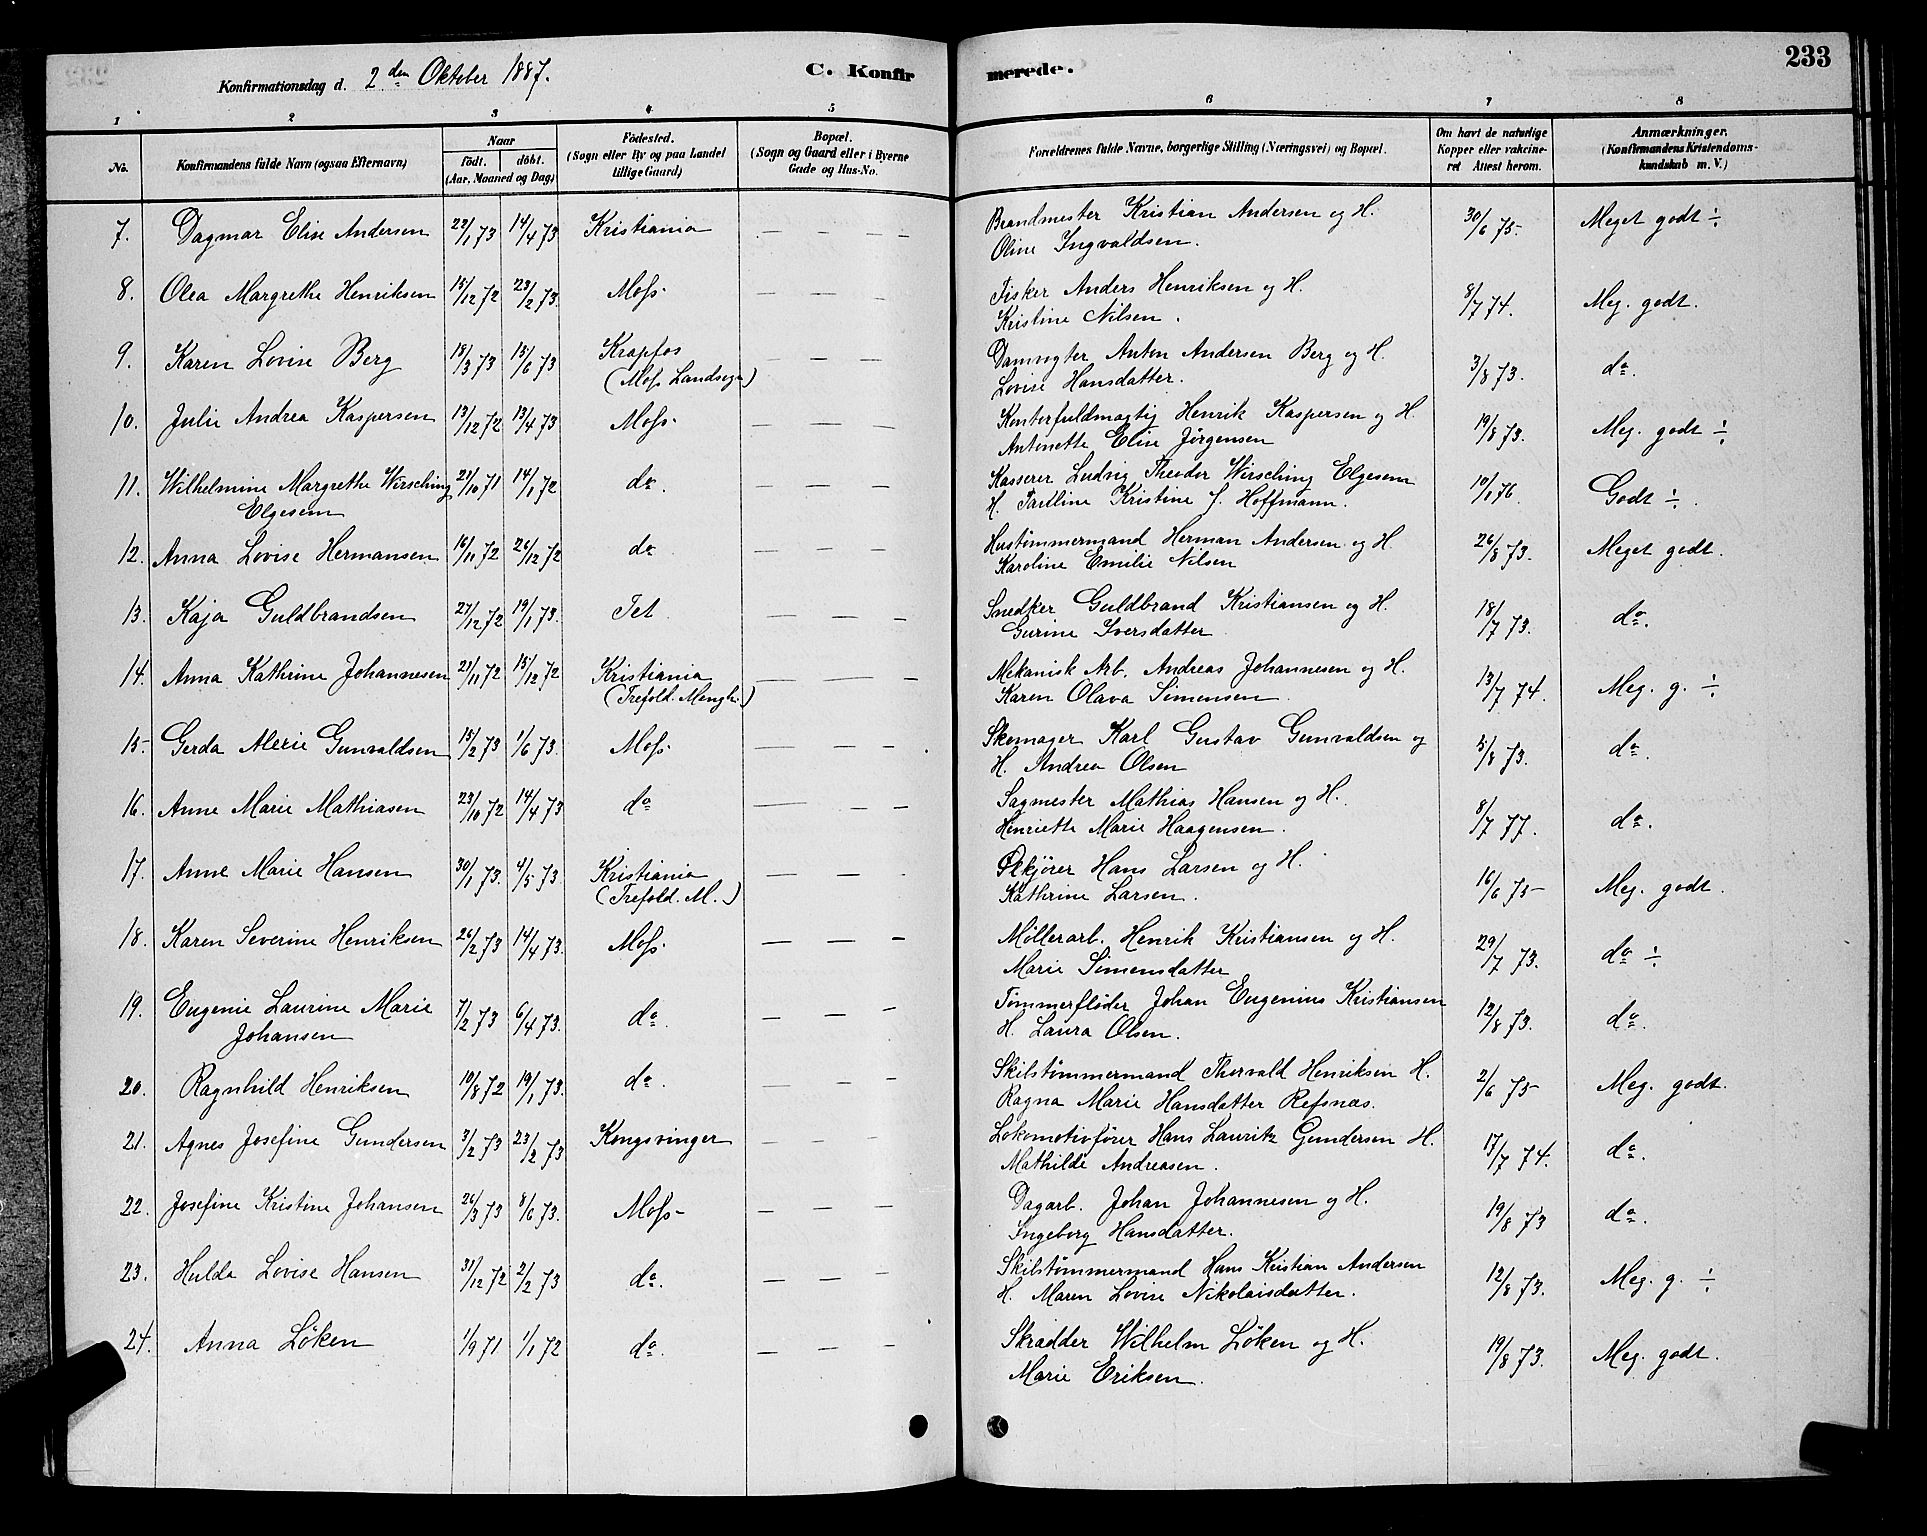 233
Konfirmationsdag d. 2den Oktober 1887. C. Konfirmerede.
1 2 3 4 5 6 7 8
No. Konfirmandens fulde Navn (ogsaa Efternavn) Naar født. døbt. (Aar, Maaned og Dag) Fødested. (Sogn eller By og paa Landet tillige Gaard) Bopæl. (Sogn og Gaard eller i Byerne Gade og Hus-No. Forældrenes fulde Navne, borgerlige Stilling (Næringsvei) og Bopæl. Om havt de naturlige Kopper eller vakcineret Attest herom. Anmærkninger. (Konfirmandens Kristendomskundskab m. V.)
7. Dagmar Elise Andersen 22/1 73 14/4 73 Kristiania — — — Brandmester Kristian Andersen og H. 30/6 75. Meget godt ÷
Oline Ingvaldsen.
8. Olea Margrethe Henriksen 15/12 72 23/2 73. Moss — — — Fisker Anders Henriksen og H. 8/7 74. Meg. godt.
Kristine Nilsen.
9. Karen Lovise Berg 18/3 73 15/6 73 Krapfos — — — Damvogter Anton Andersen Berg og H. 3/8 73. do.
(Moss Landsogn) Lovise Hansdatter.
10. Julie Andrea Kaspersen 13/12 72 13/4 73 Moss — — — Kontorfuldmægtig Henrik Kaspersen og H. 19/8 73. Meg. godt ÷
Antonette Elise Jörgensen
11. Wilhelmine Margrethe Wirsching 21/10 71 14/1 72 do. — — — Kasserer Ludvig Theodor Wirsching Elgesem 10/1 76. Godt ÷.
Elgesem H. Pauline Kristine f. Hoffmann.
12. Anna Lovise Hermansen 16/11 72 26/12 72 do — — — Hustømmermand Herman Andersen og H. 26/8 73. Meget godt.
Karoline Emilie Nilsen
13. Kaja Guldbrandsen 27/12 72 19/1 73. Tet — — — Snedker Guldbrand Kristiansen og H. 18/7 73. do.
Gurine Iversdatter
14. Anna Kathrine Johannesen 21/11 72 15/12 72 Kristiania — — — Mekanisk Arb. Andreas Johannesen og H. 13/7 74. Meg. g. ÷
(Trefold. Mengh.) Karen Olava Simensen
15. Gerda Alerie Gunvaldsen 15/2 73 1/6 73. Moss — — — Skomager Karl Gustav Gunvaldsen og 5/8 73. do.
H. Andrea Olsen
16. Anne Marie Mathiasen 23/10 72 14/4 73 do — — — Sagmester Mathias Hansen og H. 8/7 77. do.
Henriette Marie Haagensen.
17. Anne Marie Hansen 30/1 73. 4/5 73. Kristiania — — — Ølkjører Hans Larsen og H. 16/6 75 Meg. godt.
(Trefold. M.) Kathrine Larsen.
18. Karen Severine Henriksen 26/2 73 14/4 73. Moss — — — Møllerarb. Henrik Kristiansen og H. 29/7 73. do ÷
Marie Simensdatter
19. Eugenie Laurine Marie 7/2 73 6/4 73. do. — — — Tømmerfløder Johan Eugenius Kristiansen 12/8 73. do.
Johansen H. Laura Olsen.
20. Ragnhild Henriksen 10/8 72 19/1 73. do. — — — Skibstømmermand Thorvald Henriksen H. 2/6 75 Meg. godt.
Ragna Marie Hansdatter Refsnæs.
21. Agnes Josefine Gundersen 3/2 73 23/2 73 Kongsvinger — — — Lokomotivfører Hans Lauritz Gundersen H. 17/7 74. do.
Mathilde Andreasen.
22. Josefine Kristine Johansen 26/3 73 8/6 73. Moss — — — Dagarb. Johan Johannesen og H. 19/8 73 do.
Ingeborg Hansdatter.
23. Hulda Lovise Hansen 31/12 72 2/2 73 do. — — — Skibstømmermand Hans Kristian Andersen 12/8 73. Meg. g. ÷
H. Maren Lovise Nikolaisdatter.
24. Anna Löken 1/9 71 1/1 72 do. — — — Skrædder Wilhelm Löken og H. 19/8 73. Meg. godt.
Marie Eriksen.